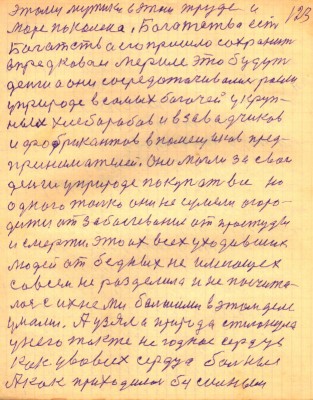 этому мутики в этом труде и 123
море поколена, Богатетва ест
Богатства его пришло сохранит
впред ковам мерилм. Это будут
денга а они сосредотачивалис
уприроде в самых богачей у круп-
ных хлебарабов и в завадчиков
и фобрикантов в помещиков пред-
принимателей. Они могли за свое
денги уприроде покупат все но
одного толко они не сумели огоро-
дити от заболевания от простуды
и смерти, это их всех уходивших
людей от бедных не имеющех
совсем не разделила и не посчита-
лася с ихнеми болшими в этом деле
умами. А узяла природа столкнула
у него также не годное сердце
как у во всех сердца болные
А как приходилос бы силным